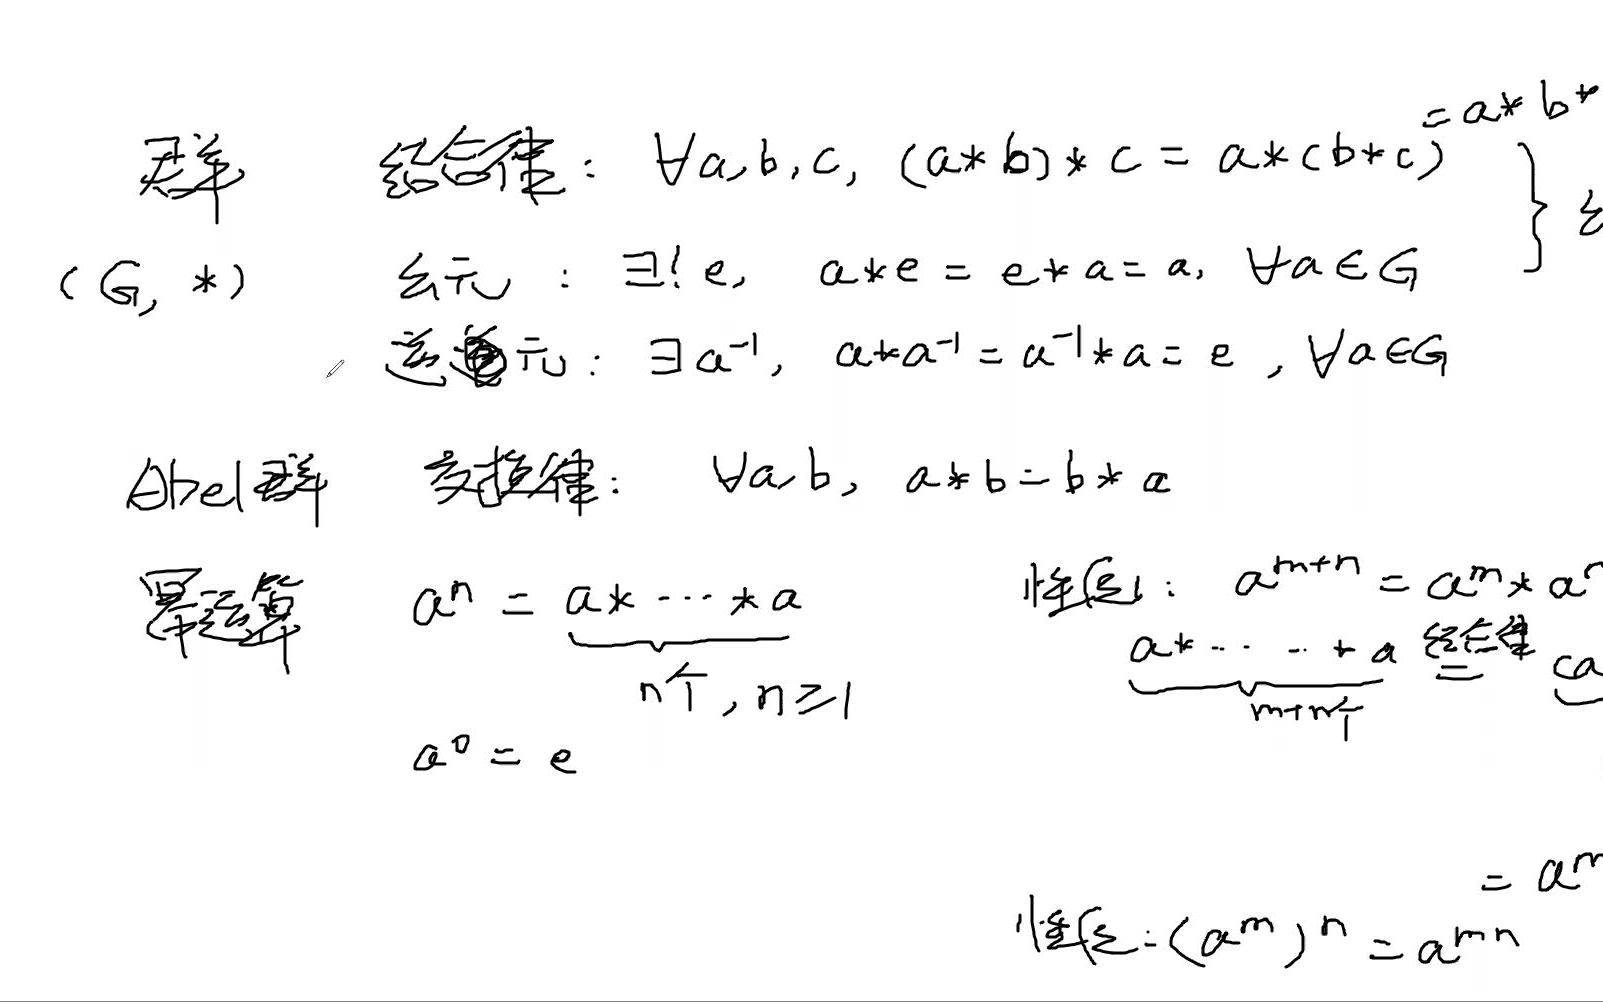 = a * b *
群 结合律: ∀a, b, c, (a * b) * c = a * (b * c)
(G, *) 幺元: ∃! e, a * e = e * a = a, ∀a ∈ G
逆元: ∃ a⁻¹, a * a⁻¹ = a⁻¹ * a = e, ∀a ∈ G
Abel群 交换律: ∀a, b, a * b = b * a
幂运算 aⁿ = a * ⋯ * a
n个, n ≥ 1
a⁰ = e
性质: aᵐ⁺ⁿ = aᵐ * aⁿ
a * ⋯ ⋯ * a 结合律 = (a
m+n个
= aᵐ
性质: (aᵐ)ⁿ = aᵐⁿ